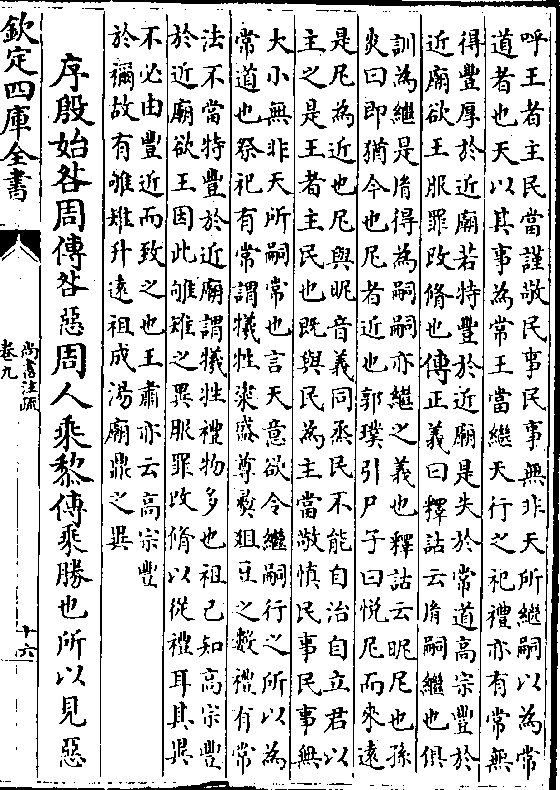 呼王者主民當謹敬民事民事無非天所繼嗣以為常
道者也天以其事為常王當繼天行之祀禮亦有常無
得豐厚於近廟若特豐於近廟是失於常道高宗豐於
近廟欲王服罪改脩也傳正義曰釋詁云胤嗣繼也俱
訓為繼是胤得為嗣嗣亦繼之義也釋詁云昵尼也孫
炎曰即猶今也尼者近也郭璞引尸子曰悦尼而來逺
是尼為近也尼與昵音義同烝民不能自治自立君以
主之是王者主民也既與民為主當敬慎民事民事無
大小無非天所嗣常也言天意欲令繼嗣行之所以為
常道也祭祀有常謂犧牲粢盛尊彞俎豆之數禮有常
法不當特豐於近廟謂犧牲禮物多也祖己知高宗豐
於近廟欲王因此雊雉之異服罪改脩以從禮耳其異
不必由豐近而致之也王肅亦云高宗豐
於禰故有雊雉升逺祖成湯廟鼎之異
序殷始咎周傳咎惡周人乘黎傳乘勝也所以見惡
欽定四庫全書
尚書注疏
卷九
十六